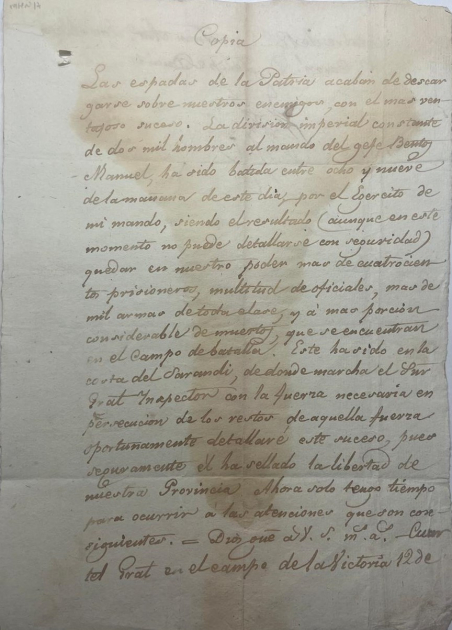 Copia
Las espadas de la Patria acaban de descar
garse sobre nuestros enemigos, con el mas ven
tajoso suceso. La division imperial constante
de dos mil hombres al mando del gefe Bento
Manuel, ha sido batida entre ocho y nueve
de la mañana de este dia, por el Egercito de
mi mando, siendo el resultado (aunque en este
momento no puede detallarse con seguridad)
quedar en nuestro poder mas de cuatrocien
tos prisioneros, multitud de oficiales, mas de
mil armas de toda clase, y á mas porcion
considerable de muertos, que se encuentran
en el Campo de batalla. Este ha sido en la
costa del Sarandi, de donde marcha el
Gral Inspector con la fuerza necesaria en
persecucion de los restos de aquella fuerza
oportunamente detallaré este suceso, pues
seguramente él ha sellado la libertad de
nuestra Provincia Ahora solo tengo tiempo
para ocurrir á las atenciones que son con
siguientes. = Dios gue á V. S. m.s a.s - Cuar
tel Gral en el campo de la Victoria 12 de